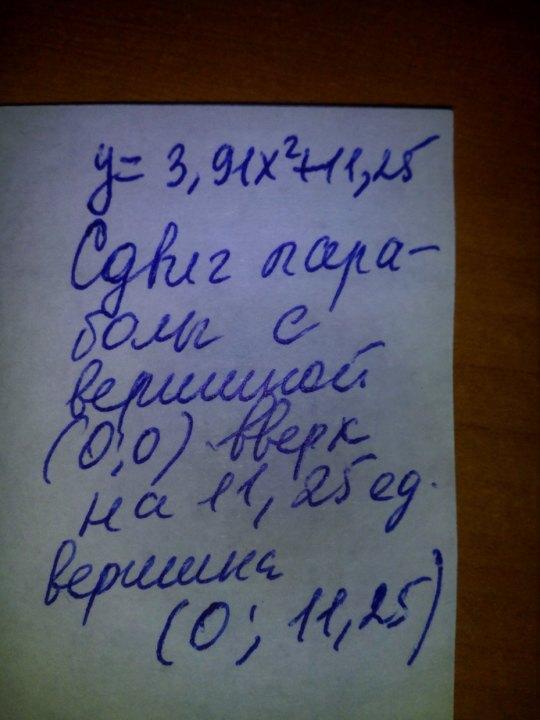 y= 3,91x²+11,25
Сдвиг пара-
болы с
вершиной
(0;0) вверх
на 11,25 ед.
вершина
(0; 11,25)